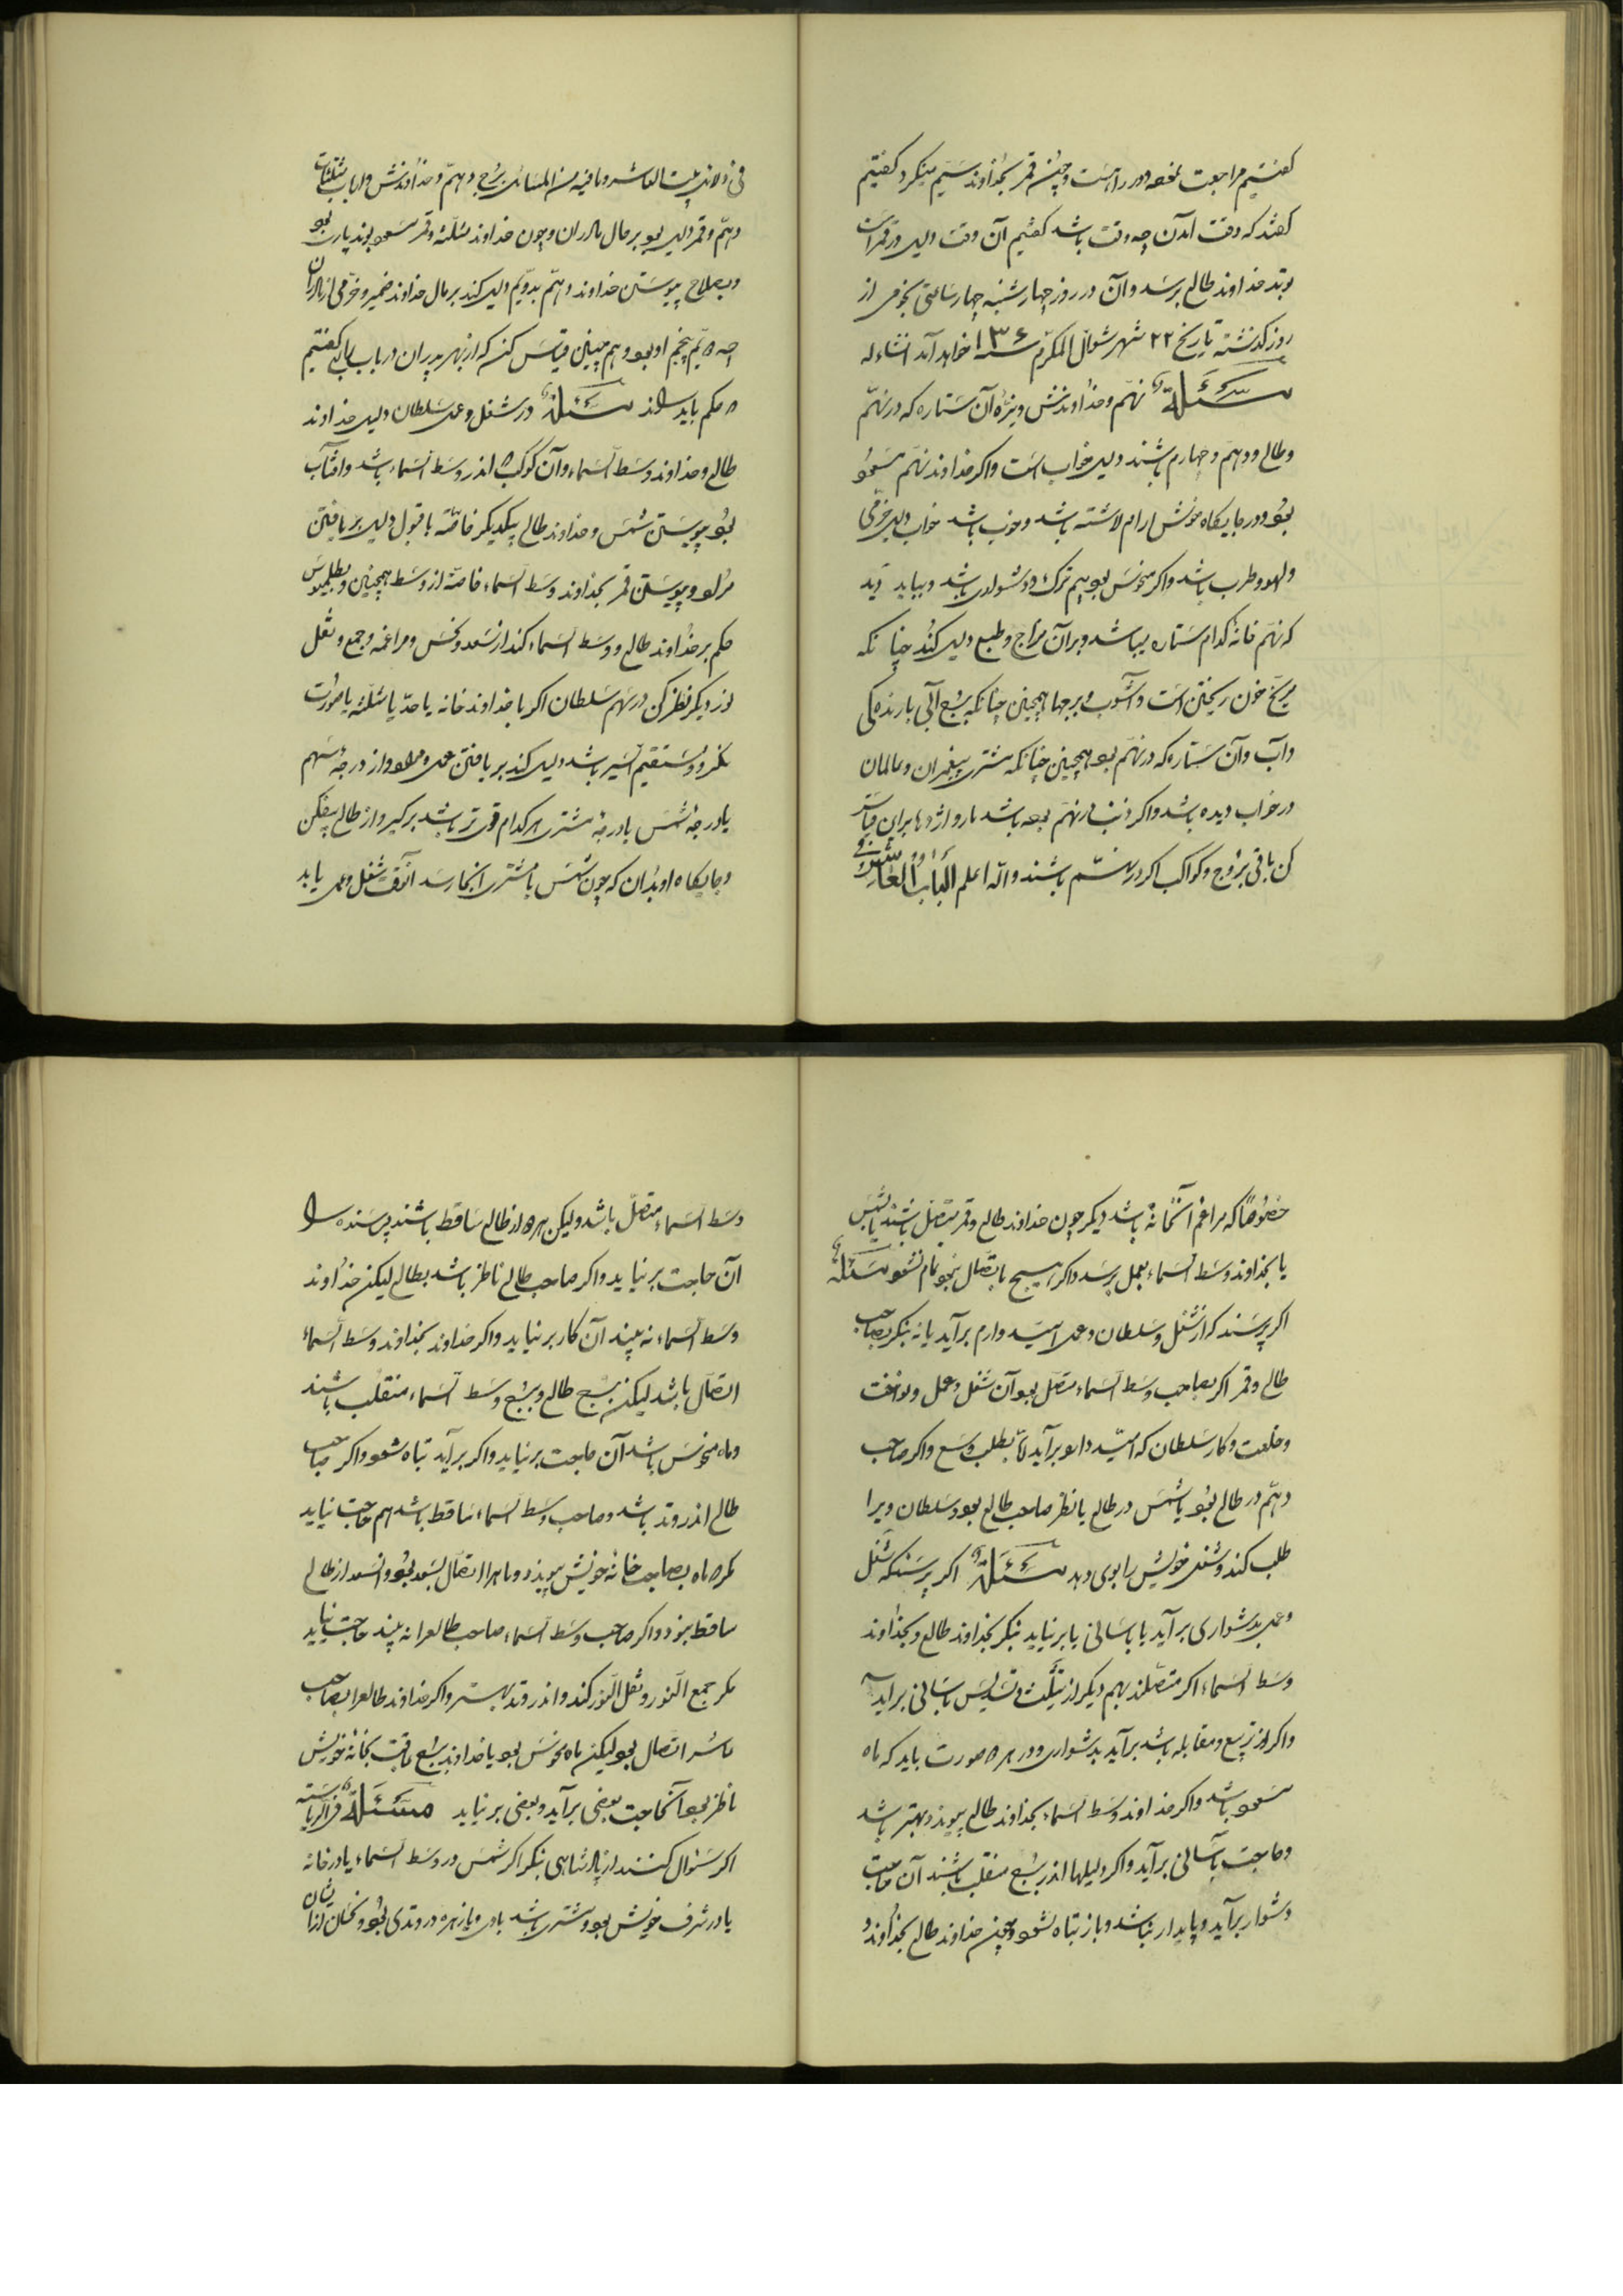 کفتیم مراجعت نموده در راهست وچون قمر بخداوند سیم مینکرد کفتیم
کفتند که وقت آمدن چه وقت باشد کفتیم آن وقت دلیل در قمر است
بوتد خداوند طالع برسد وآن در روز چهارشنبه چهار ساعتی نجومی از
روز کذشته بتاریخ ۲۲ شهر شوال المکرم سنه خواهد آمد انشاءله
مسئلة نهم وخداوندش ویژه آن ستاره که در نهم
وطالع ودهم وچهارم باشند دلیل خواب است واکر خداوند نهم مسعود
بود ودر جایکاه خوش ارام داشته باشد وخوب باشد خواب دلیل خرمی
ولهو وطرب باشد واکر منحوس بود بیم ترک ودشواری باشد وبباید دید
که نهم خانه کدام ستاره میباشد وبرآن مزاج وطبع دلیل کند چنانکه
مریخ خون ریختن است وآشوب وبرجها همچنین چنانکه برج آبی بارندکی
وآب وآن ستاره که در نهم بود همچنین چنانکه مشتری پیغمبران وعالمان
در خواب دیده باشد واکر ذنب در نهم بود باشد مار واژدها بران قیاس
کن باقی بروج وکواکب اکر در نهم باشند والله اعلم الباب العاشر
فی دلائل بیت العاشر ومافیه من المسائل برج دهم وخداوندش وارباب مثلثات
دهم وقمر دلیل بود بر حال مادران وچون خداوند مثلثه وقمر مسعود بوند
وبصلاح پیوستن خداوند دهم بدویم دلیل کند بر مال خداوند ضمیر وخرمی از مادران
چه دویم پنجم او بود وهم چنین قیاس کنند که از بهر پدران در باب رابع کفتیم
حکم باید راند مسئلة در شغل وعمل سلطان دلیل خداوند
طالع وخداوند وسط السماء وآن کوکب که اندر وسط السماء باشد وافتاب
بود پیوستن شمس وخداوند طالع بیکدیکر خاصه با قبول دلیل بر یافتن
مراد وپیوستن قمر بخداوند وسط السماء خاصه از وسط همچنین وبطلمیوس
حکم بر خداوند طالع ووسط السماء کند از سعد ونحس ومراغمه وجمع ونقل
نور دیکر نظر کن در سهم سلطان اکر با خداوند خانه یا حد یا مثلثه یا صورت
نکرد ومستقیم السیر باشد دلیل کند بر یافتن عمل ومراد واز درجه سهم
یا درجه شمس یا درجه مشتری هر کدام قوی تر باشد برکیر واز طالع بیفکن
وجایکاه او بدان که چون شمس یا مشتری انجا رسد آنوقت شغل وعمل یابد
خصوصا که مراغم آنخانه باشد دیکر چون خداوند طالع وقمر متصل باشند بشمس
یا بخداوند وسط السماء بعمل برسد واکر هیچ باتصال نبود تمام نشود مسئله
اکر پرسند که از شغل وسلطان وعمل امید دارم برآید یا نه بنکر بصاحب
طالع وقمر اکر بصاحب وسط السماء متصل بود آن شغل وعمل
وخلعت وکار سلطان که امید دارد برآید تا بطلب وسع واکر صاحب
دهم در طالع بود یا شمس در طالع با نظر صاحب طالع بود سلطان ویرا
طلب کند وشغل خویش را بوی دهد مسئلة اکر پرسند که شغل
وعمل بدشواری برآید یا باسانی یا برنیاید بنکر بخداوند طالع وبخداوند
وسط السماء اکر متصلند بهم دیکر از تثلیث وتسدیس باسانی براید
واکر از تربیع ومقابله باشد برآید بدشواری ودر هر دو صورت باید که ماه
مسعود باشد واکر خداوند وسط السماء بخداوند طالع پیوندد بهتر باشد
وحاجت بآسانی برآید واکر دلیلها اندر برج منقلب باشند آن حاجت
دشوار برآید وپایدار نباشد وباز تباه شود وچون خداوند طالع بخداوند
وسط السماء متصل باشد ولیکن هر دو از طالع ساقط باشند پرسنده را
آن حاجت برنیاید واکر صاحب طالع ناظر باشد بطالع لیکن خداوند
وسط السماء نه بیند آن کار برنیاید واکر خداوند بخداوند وسط السماء
اتصال باشد لیکن برج طالع وبرج وسط السماء منقلب باشند
وماه منحوس باشد آن حاجت برنیاید واکر برآید تباه شود واکر صاحب
طالع اندر وتد باشد وصاحب وسط السماء ساقط باشد هم حاجت نیاید
مکر ماه بصاحب خانه خویش پیوندد وماه را اتصال بسعد بود وآنسعد از طالع
ساقط نبود واکر صاحب وسط السماء صاحب طالع را نه بیند حاجت نیاید
مکر جمع النور ونقل النور کند واندر وتد بهتر واکر خداوند طالع را بصاحب
عاشر اتصال بود لیکن ماه منحوس بود یا خداوند برج عاقبت بخانه خویش
ناظر بود آنحاجت بعضی برآید وبعضی برنیاید مسئلة فی الریاسته
اکر سئوال کنند از پادشاهی بنکر اکر شمس در وسط السماء یا در خانه
یا در شرف خویش بود ومشتری باشد باوی ویا زهره در وتدی بود ونحسان از ایشان